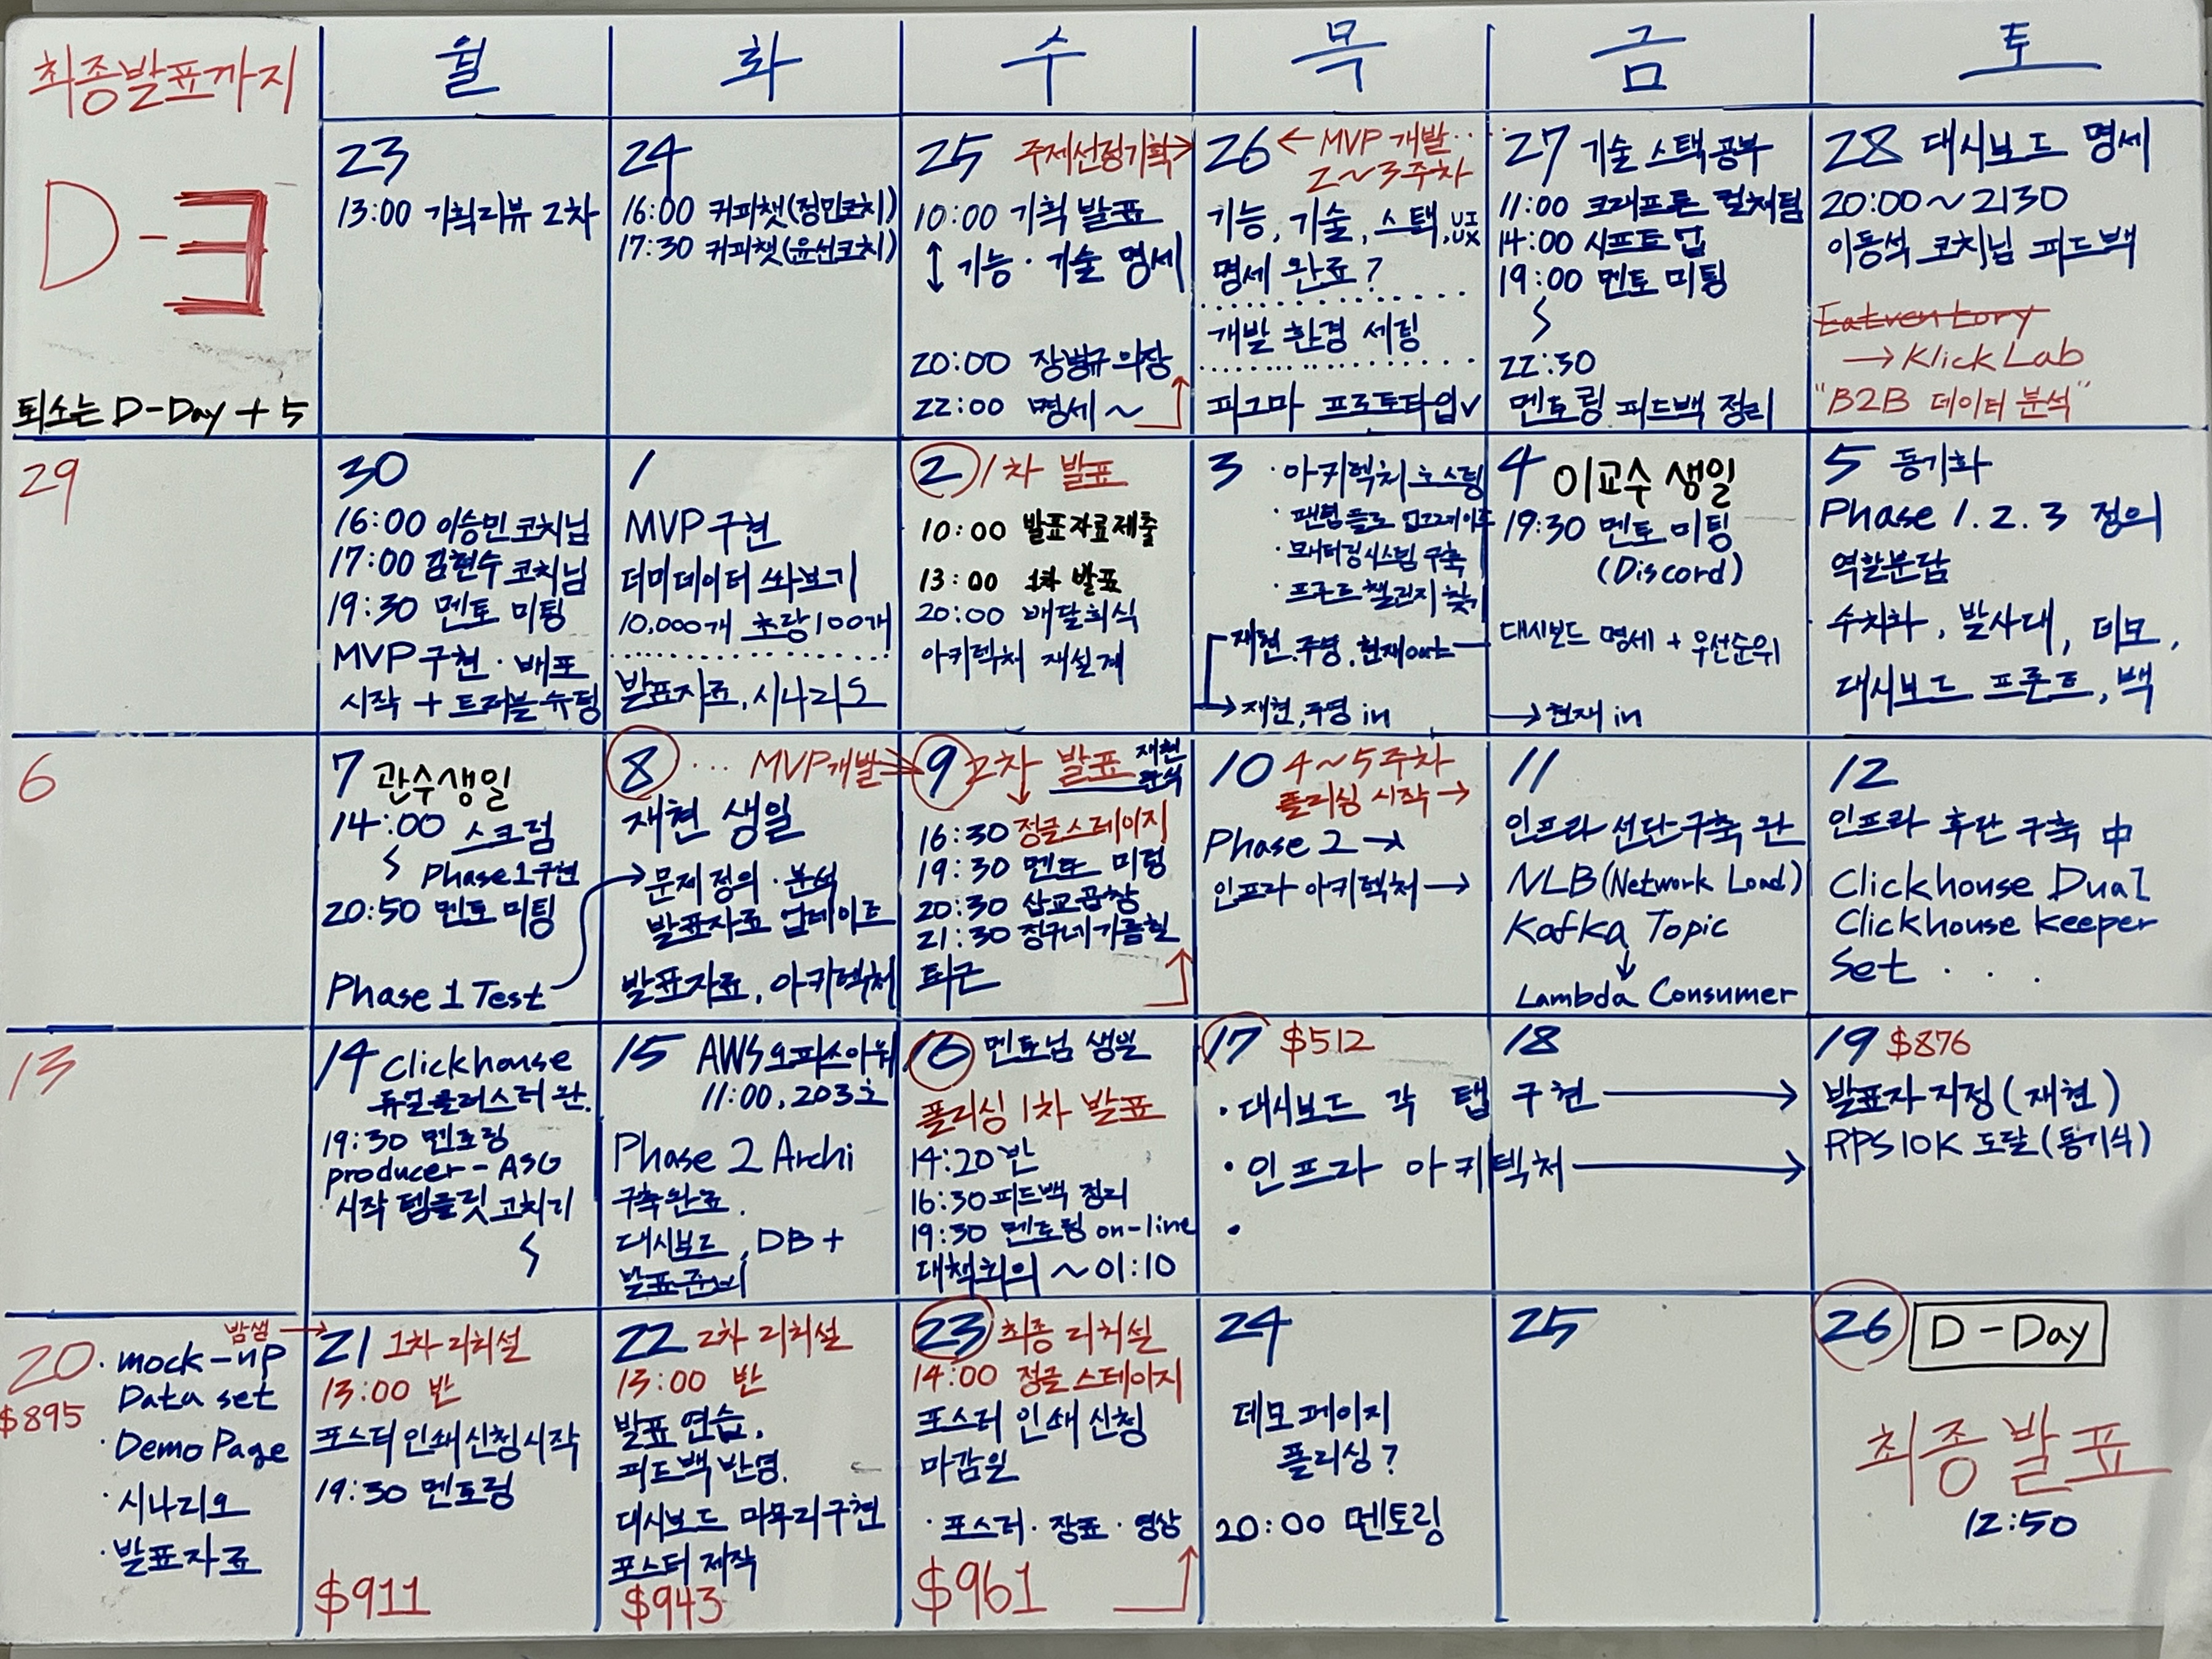 최종발표까지
D-3
퇴소는 D-Day + 5
월
화
수
목
금
토
23
13:00 기획리뷰 2차
24
16:00 커피챗(정민코치)
17:30 커피챗(윤선코치)
25 주제선정기획→
10:00 기획 발표
↕ 기능·기술 명세
20:00 장병규 의장
22:00 명세 ~
26 ← MVP 개발··
2~3주차
기능, 기술, 스택, UI UX
명세 완료?
개발 환경 세팅
피그마 프로토타입✓
27 기술 스택 공부
11:00 크래프톤 컬처팀
14:00 시프트업
19:00 멘토 미팅
22:30
멘토링 피드백 정리
28 대시보드 명세
20:00~2130
이동석 코치님 피드백
Eatventory
→ Klick Lab
"B2B 데이터 분석"
29
30
16:00 이승민 코치님
17:00 김현수 코치님
19:30 멘토 미팅
MVP 구현·배포
시작 + 트러블슈팅
1
MVP 구현
더미데이터 쏴보기
10,000개 초당 100개
발표자료, 시나리오
2 1차 발표
10:00 발표자료제출
13:00 1차 발표
20:00 배달회식
아키텍처 재설계
3 ·아키텍처 호스팅
·모니터링시스템 구축
·프론트 챌린지 찾기
재현, 주영, 현재 out
→재현, 주영 in
4 이교수 생일
19:30 멘토 미팅
(Discord)
대시보드 명세 + 우선순위
→현재 in
5 동기화
Phase 1. 2. 3 정의
역할분담
수치화, 발사대, 데모,
대시보드 프론트, 백
6
7 관수생일
14:00 스크럼
Phase 1 구현
20:50 멘토 미팅
Phase 1 Test
8 ··· MVP개발→
재현 생일
→문제 정의·분석
발표자료 업데이트
발표자료, 아키텍처
9 2차 발표 재현
16:30 정글스테이지
19:30 멘토 미팅
20:30 삼교곱창
21:30 장구네 가름힐
퇴근
10 4~5주차
폴리싱 시작→
Phase 2 →
인프라 아키텍처→
11
인프라 선단 구축 완
NLB (Network Load)
Kafka Topic
↓
Lambda Consumer
12
인프라 후단 구축 中
Clickhouse Dual
Clickhouse Keeper
Set · · ·
13
14 Clickhouse
듀얼클러스터 완.
19:30 멘토링
producer-ASG
시작 템플릿 고치기
15 AWS오피스아워
11:00, 203호
Phase 2 Archi
구축완료.
대시보드, DB +
발표준비
16 멘토님 생일
폴리싱 1차 발표
14:20 반
16:30 피드백 정리
19:30 멘토링 on-line
대책회의 ~01:10
17 $512
·대시보드 각 탭 구현 →
·인프라 아키텍처 →
·
18
19 $876
발표자 지정 (재현)
RPS 10K 도달 (동기식)
20 밤샘→
$895
·mock-up
Data set
·Demo Page
·시나리오
·발표자료
21 1차 리허설
13:00 반
포스터 인쇄 신청 시작
19:30 멘토링
$911
22 2차 리허설
13:00 반
발표 연습,
피드백 반영.
대시보드 마무리 구현
포스터 제작
$943
23 최종 리허설
14:00 정글 스테이지
포스터 인쇄 신청
마감일
·포스터·장표·영상
$961
24
데모 페이지
폴리싱?
20:00 멘토링
25
26 D-Day
최종발표
12:50